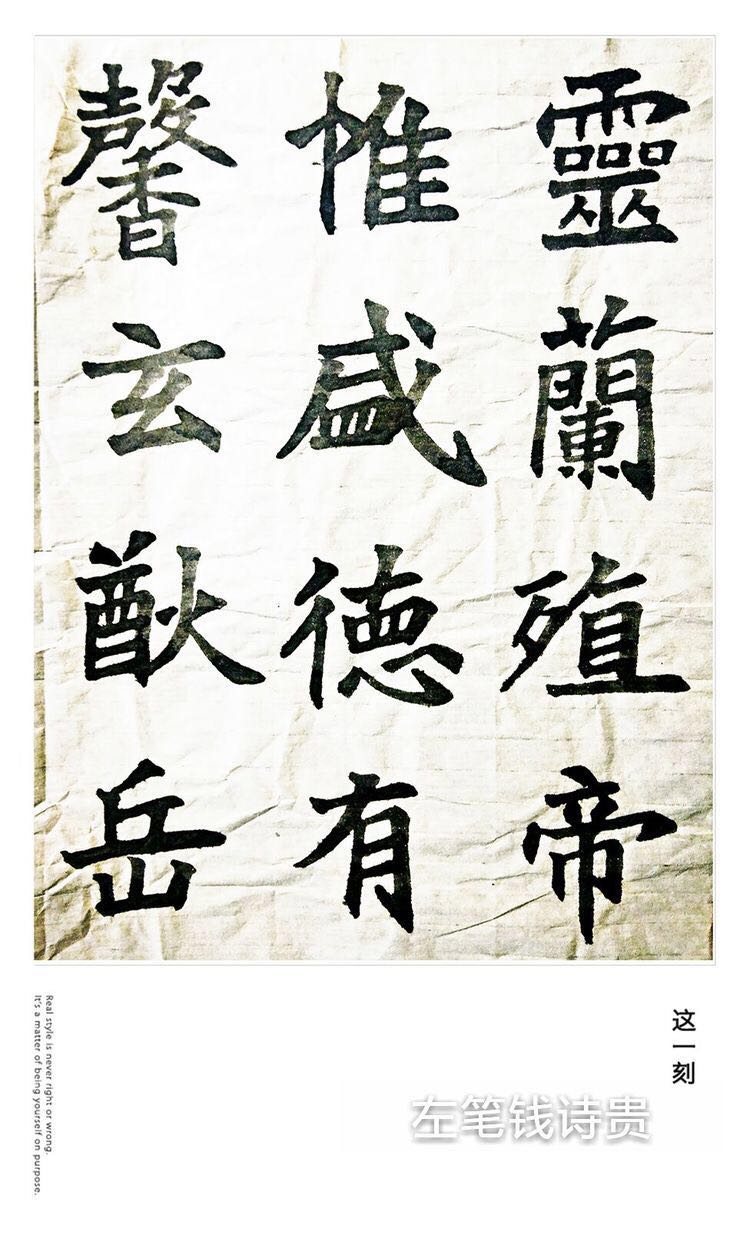 靈蘭殖帝
惟盛德有
馨玄猷岳
这一刻
左笔钱诗贵
Real style is never right or wrong.
It's a matter of being yourself on purpose.